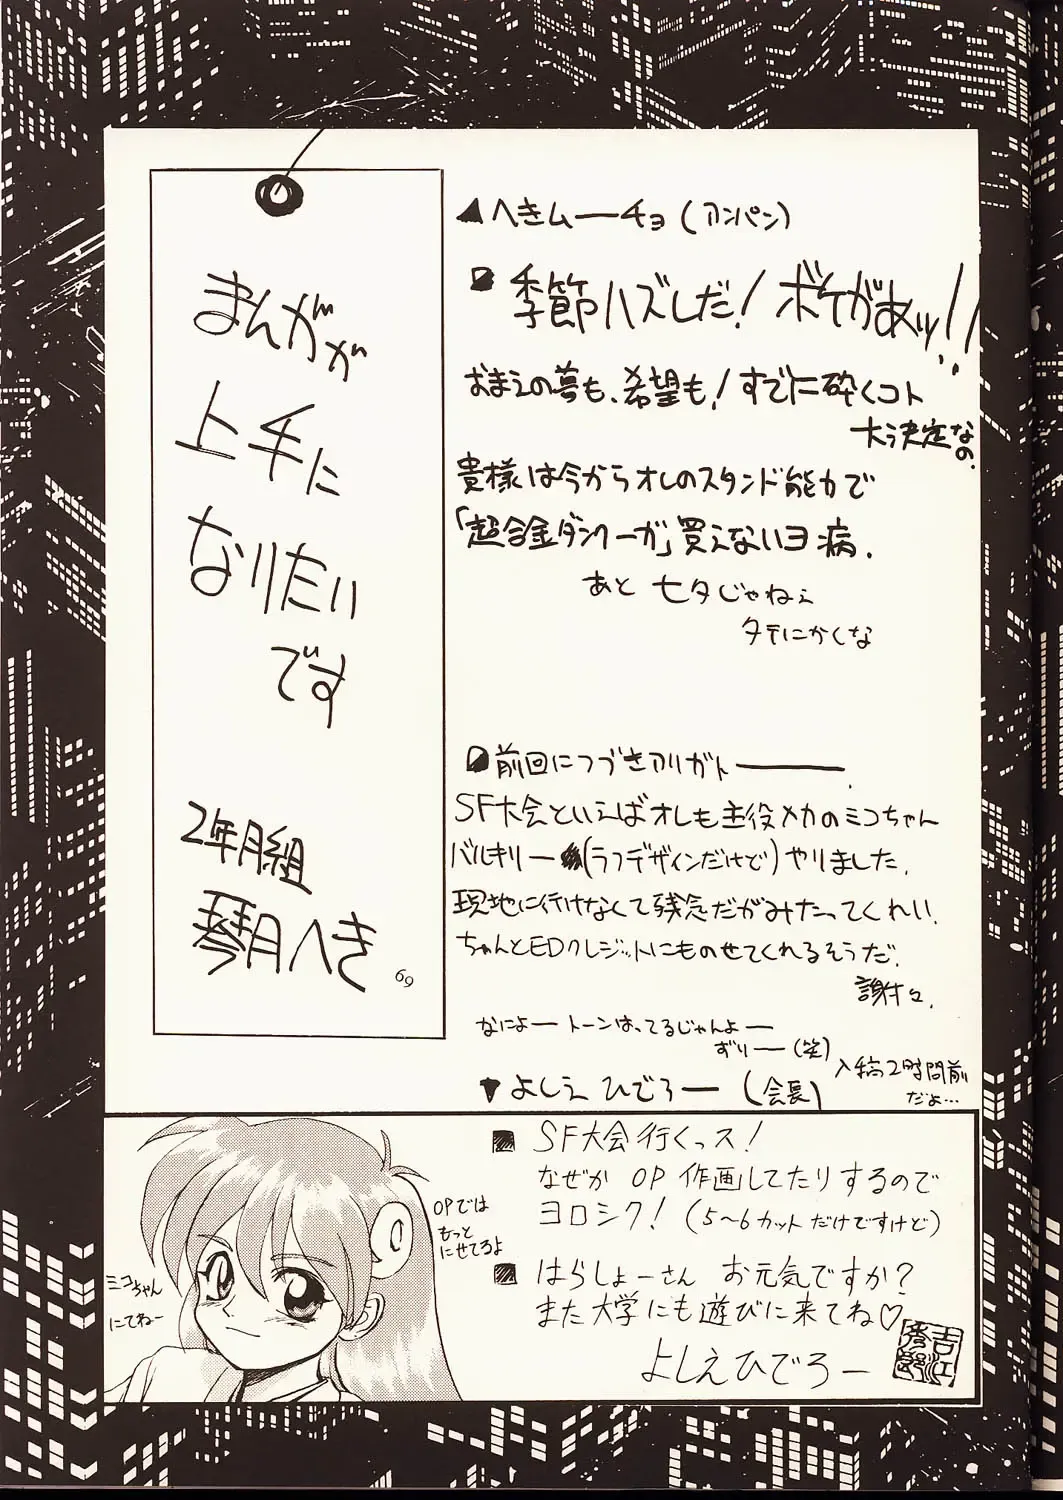 まんがが
上手に
なりたい
です
2年月組
琴月へき
69
▲へきムーチョ(アンパン)
季節ハズレだ!ボケがあッ!!
おまえの夢も、希望も!すでに砕くコト
大決定なの.
貴様は今からオレのスタンド能力で
「超合金ダンクーガ」買えないヨ病.
あと 七夕じゃねぇ
タテにかくな
前回につづきアリガトー.
SF大会といえばオレも主役メカのミコちゃん
バルキリー(ラフデザインだけど)やりました.
現地に行けなくて残念だがみたってくれい.
ちゃんとEDクレジットにものせてくれるそうだ.
謝々.
なによートーンはってるじゃんよー
ずりー(笑)
入稿2時間前
だよ…
▼よしえひでろー(会長)
■ SF大会行くっス!
なぜか OP 作画してたりするので
ヨロシク!(5〜6カットだけですけど)
■ はらしょーさん お元気ですか?
また大学にも遊びに来てね♡
よしえひでろー
吉江
秀郎
OPでは
もっと
にせてるよ
ミコちゃん
にてねー